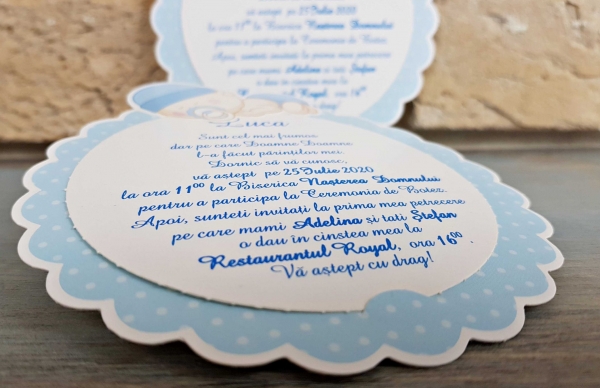 să aștept pe 25 Iulie 2020
la ora 11⁰⁰ la Biserica Nașterea Domnului
pentru a participa la Ceremonia de Botez.
Apoi, sunteți invitați la prima mea petrecere
pe care mami Adelina și tati Ștefan
o dau în cinstea mea la
Royal, ora 16⁰⁰
Luca
Sunt cel mai frumos
dar pe care Doamne Doamne
l-a făcut părinților mei.
Dornic să vă cunosc,
vă aștept pe 25 Iulie 2020
la ora 11⁰⁰ la Biserica Nașterea Domnului
pentru a participa la Ceremonia de Botez.
Apoi, sunteți invitați la prima mea petrecere
pe care mami Adelina și tati Ștefan
o dau în cinstea mea la
Restaurantul Royal, ora 16⁰⁰.
Vă aștept cu drag!